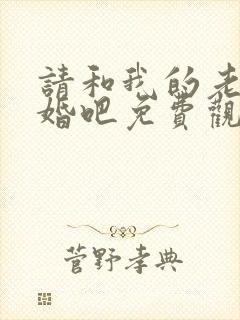 請和我的老
婚吧免費觀
菅野孝典